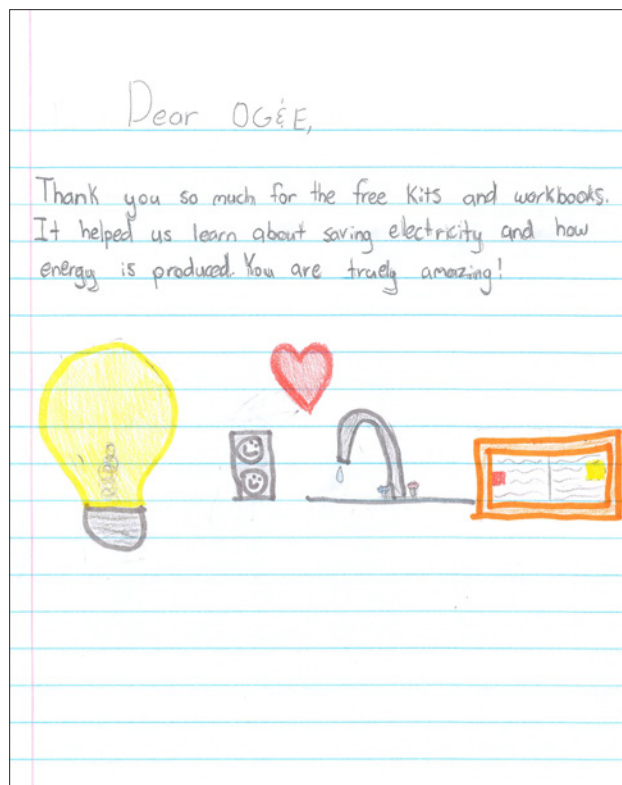 Dear OG&E,
Thank you so much for the free kits and workbooks.
It helped us learn about saving electricity and how
energy is produced. You are truely amazing!